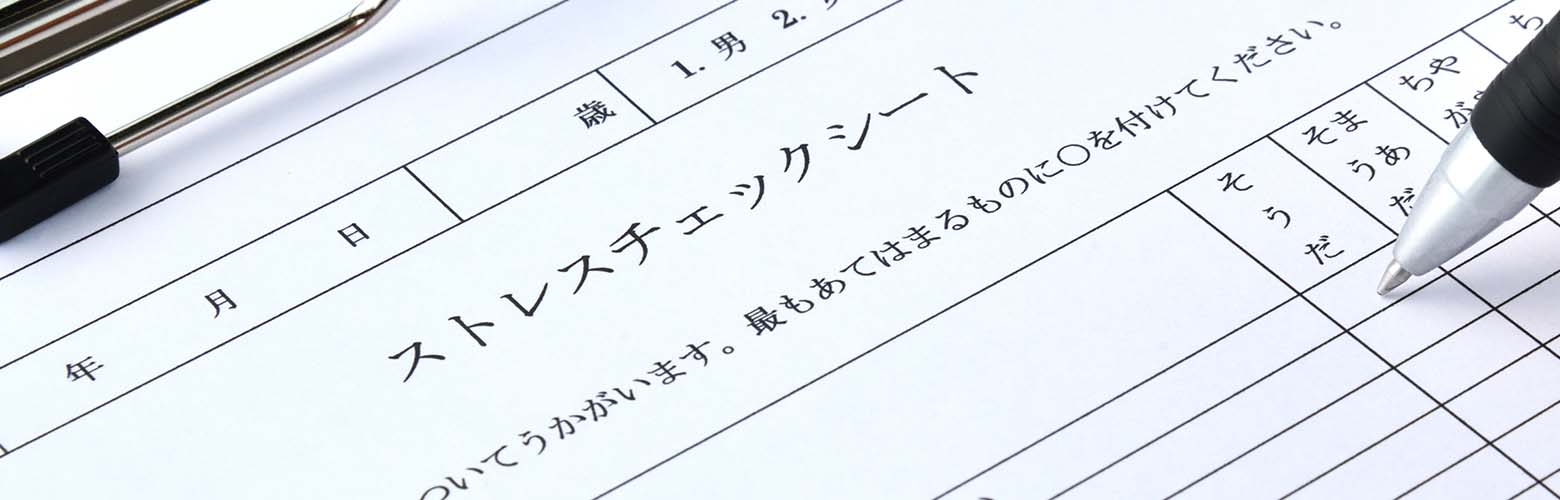 年 月 日 歳 1. 男 2.
ストレスチェックシート
いてうかがいます。最もあてはまるものに〇を付けてください。
そうだ
まあそうだ